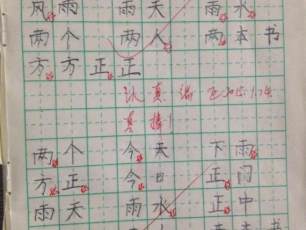 风雨 雨天 雨水
两个 两人 两本书
方方正正
认真
真棒!
两个 今天 下雨
方正 今日 正门
雨天 雨水 正中